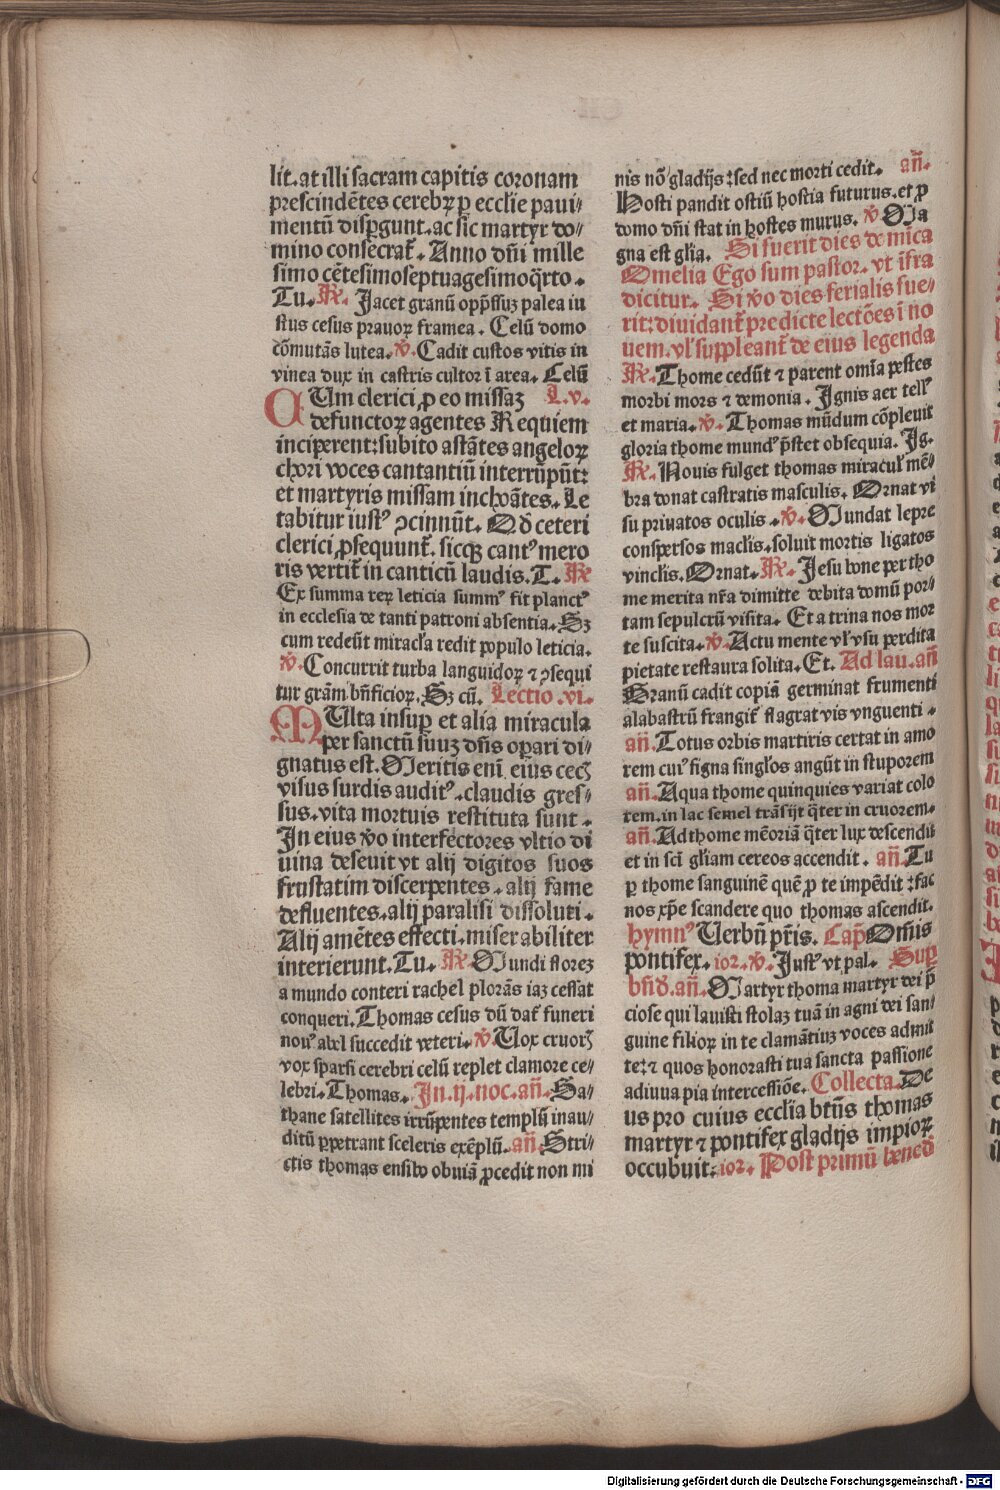 lit. at illi sacram capitis coronam
prescindētes cerebꝝ ꝑ ecclie paui⸗
mentū disꝑgunt. ac sic martyr do⸗
mino consecrat᷑. Anno dn̄i mille
simo cētesimoseptuagesimoq̄rto.
Tu. ℟. Jacet granū opp̄ssuꝫ palea iu
stus cesus prauoꝝ framea. Celū domo
cōmutās lutea. ℣. Cadit custos vitis in
vinea dux in castris cultor ī area. Celū
CUm clerici ꝓ eo missaꝫ L. v.
defunctoꝝ agentes Requiem
inciperent: subito astātes angeloꝝ
chori voces cantantiū interrūpūt:
et martyris missam inchoātes. Le
tabitur iustꝰ ꝯcinnūt. Qd̄ ceteri
clerici ꝓsequunt᷑. sicqꝫ cantꝰ mero
ris vertit᷑ in canticū laudis. T. ℟
Ex summa reꝝ leticia summꝰ fit planctꝰ
in ecclesia de tanti patroni absentia. Sꝫ
cum redeūt miracl̓a redit populo leticia.
℣. Concurrit turba languidoꝝ ⁊ ꝯsequi
tur grām bn̄ficioꝝ. Sꝫ cū. Lectio .vi.
MUlta insuꝑ et alia miracula
per sanctū suuꝫ dn̄s oꝑari di⸗
gnatus est. Meritis enī eius cecꝭ
visus surdis auditꝰ. claudis gres⸗
sus. vita mortuis restituta sunt.
In eius v̊o interfectores vltio di
uina deseuit vt alij digitos suos
frustatim discerpentes. alij fame
defluentes. alij paralisi dissoluti.
Alij amētes effecti. miserabiliter
interierunt. Tu. ℟. Mundi floreꝫ
a mundo conteri rachel plorās iaꝫ cessat
conqueri. Thomas cesus dū dat᷑ funeri
nouꝰ abel succedit veteri. ℣. Uox cruorꝭ
vox sparsi cerebri celū replet clamore ce⸗
lebri. Thomas. In .ij. noc. an̄. Sa⸗
thane satellites irrūpentes templū inau⸗
ditū ꝑpetrant sceleris exēplū. an̄. Stri⸗
ctis thomas ensibꝰ obuiā ꝓcedit non mi
nis nō gladijs: sed nec morti cedit. an̄.
Hosti pandit ostiū hostia futurus. et ꝓ
domo dn̄i stat in hostes murus. ℣. Ma
gna est gl̓ia. Si fuerit dies do mi̓ca
Omelia Ego sum pastor. vt īfra
dicitur. Si v̊o dies ferialis fue⸗
rit: diuidant᷑ predicte lectōes ī no
uem. vl̓ suppleant᷑ de eius legenda
℟. Thome cedūt ⁊ parent omīa pestes
morbi mors ⁊ demonia. Ignis aer tellꝰ
et maria. ℣. Thomas mūdum cōpleuit
gloria thome mundꝰ p̄stet obsequia. Ig.
℟. Nouis fulget thomas miracul̓ mē⸗
bra donat castratis masculis. Ornat vi
su priuatos oculis. ℣. Mundat lepre
conspersos macl̓is. soluit mortis ligatos
vincl̓is. Ornat. ℟. Jesu bone per tho
me merita nr̄a dimitte debita domū por⸗
tam sepulcrū visita. Et a trina nos mor
te suscita. ℣. Actu mente vl̓ vsu perdita
pietate restaura solita. Et. Ad lau. an̄
Granū cadit copiā germinat frumenti
alabastrū frangit᷑ flagrat vis vnguenti.
an̄. Totus orbis martiris certat in amo
rem cuiꝰ signa singl̓os angūt in stuporem
an̄. Aqua thome quinquies variat colo
rem. in lac semel trāsijt q̄ter in cruorem.
an̄. Ad thome mēoriā q̄ter lux descendit
et in sci̓ gl̓iam cereos accendit. an̄. Tu
ꝑ thome sanguinē quē ꝓ te impēdit: fac
nos xp̄e scandere quo thomas ascendit.
hymnꝰ Uerbū pr̄is. Cap̄ Om̄is
pontifex. ior. ℣. Justꝰ vt pal. Suꝑ
bn̄d̄. an̄. Martyr thoma martyr dei p̄
ciose qui lauisti stolaꝫ tuā in agni dei san⸗
guine filioꝝ in te clamātiuꝫ voces admit
te: ⁊ quos honorasti tua sancta passione
adiuua pia intercessiōe. Collecta. De
us pro cuius ecclia btūs thomas
martyr ⁊ pontifex gladijs impioꝝ
occubuit: ior. Post primū bened̓